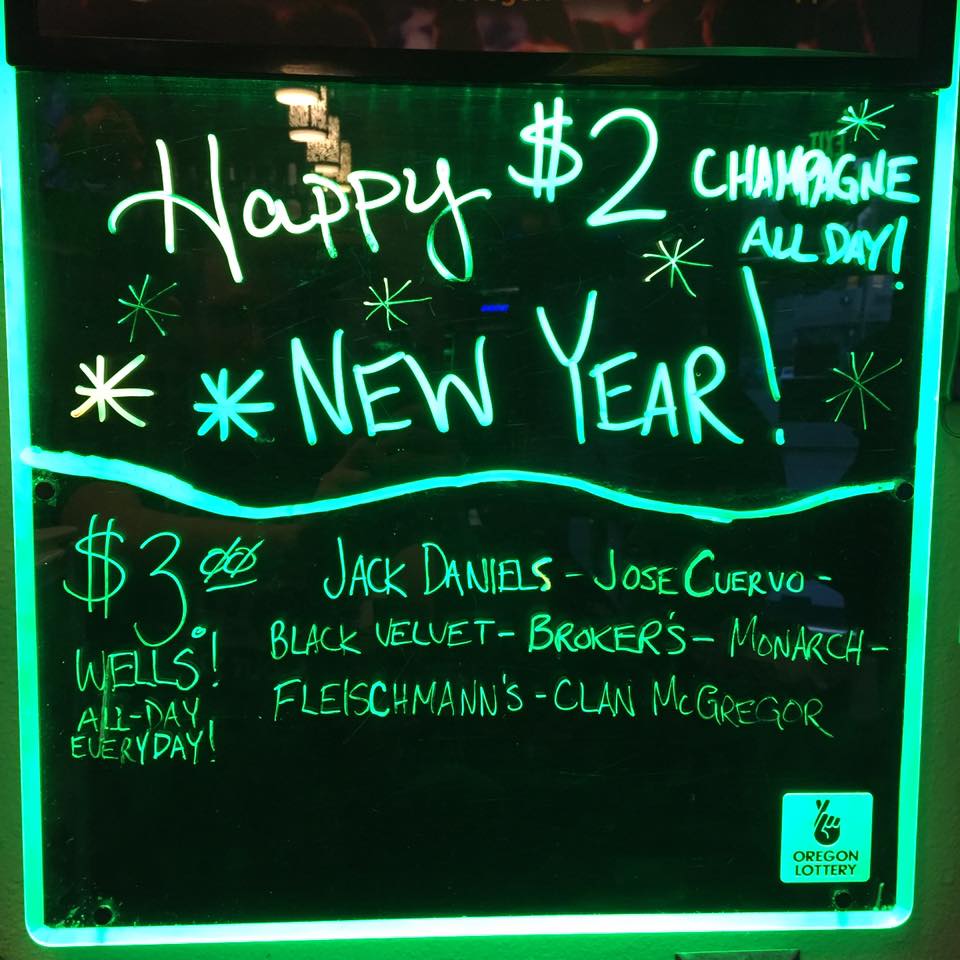 Happy $2 CHAMPAGNE
ALL DAY!
NEW YEAR!
$3.00
WELLS!
ALL-DAY
EVERYDAY!
JACK DANIELS - JOSE CUERVO -
BLACK VELVET - BROKER'S - MONARCH -
FLEISCHMANN'S - CLAN McGREGOR
OREGON
LOTTERY